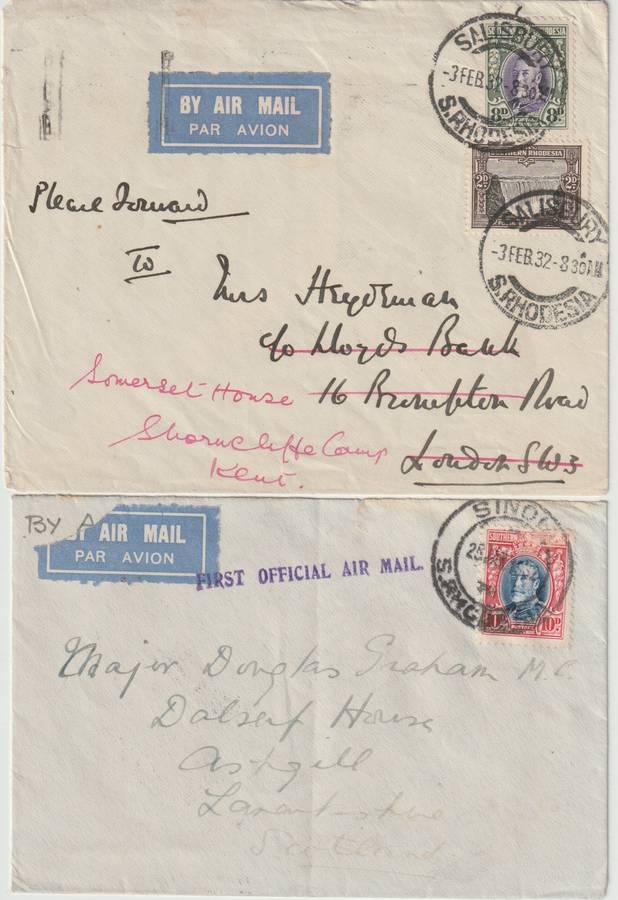 SALISBURY
-3 FEB.32-8 30
S.RHODESIA
SOUTHERN RHODESIA
8D 8D
BY AIR MAIL
PAR AVION
SOUTHERN RHODESIA
2D 2D
SALISBURY
-3 FEB.32-8 30AM
S.RHODESIA
Please Forward
To
Mrs Heydeman
c/o Lloyds Bank
Somerset House 16 Brompton Road
Shorncliffe Camp London SW3
Kent.
BY A
BY AIR MAIL
PAR AVION
FIRST OFFICIAL AIR MAIL.
SOUTHERN
10D
Major Douglas Graham M.C.
Dalserf House
Ashgill
Lanarkshire
Scotland